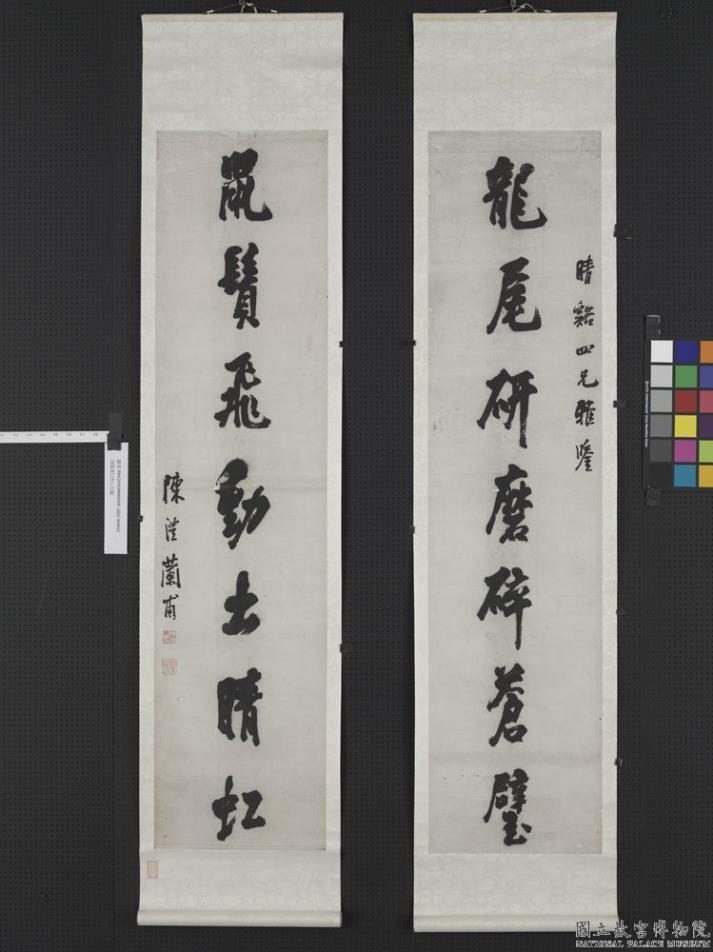 晴谿四兄雅鑒
龍尾研磨碎蒼璧
鼠鬚飛動出晴虹
陳澧蘭甫
國立故宮博物院
NATIONAL PALACE MUSEUM